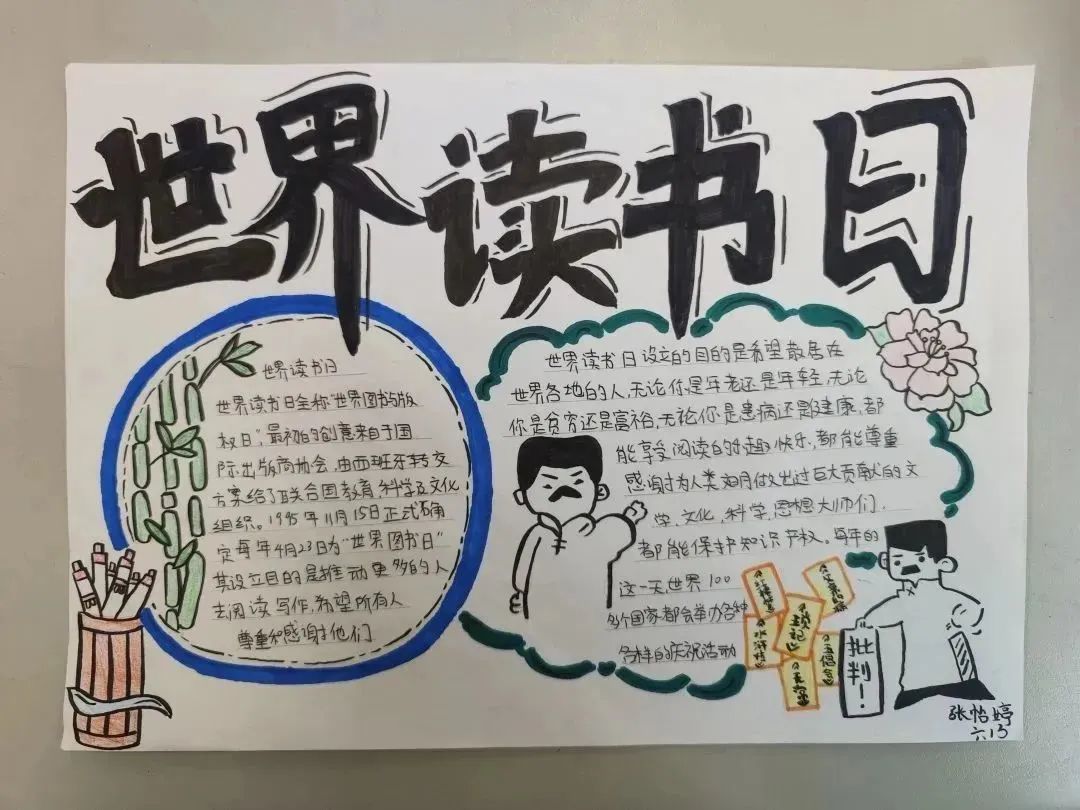 世界读书日
世界读书日
世界读书日全称"世界图书与版
权日",最初的创意来自于国
际出版商协会,由西班牙转交
方案给了联合国教育科学及文化
组织。1995年11月15日正式确
定每年4月23日为"世界图书日"
其设立目的是推动更多的人
去阅读写作,希望所有人
尊重和感谢他们
世界读书日设立的目的是希望散居在
世界各地的人,无论你是年老还是年轻,无论
你是贫穷还是富裕,无论你是患病还是健康,都
能享受阅读的乐趣快乐,都能尊重
感谢为人类文明做出过巨大贡献的文
学,文化,科学,思想大师们,
都能保护知识产权。每年的
这一天,世界100
多个国家都会举办各种
各样的庆祝活动
《红楼梦》
《水浒传》
批判!
张怡婷
六13